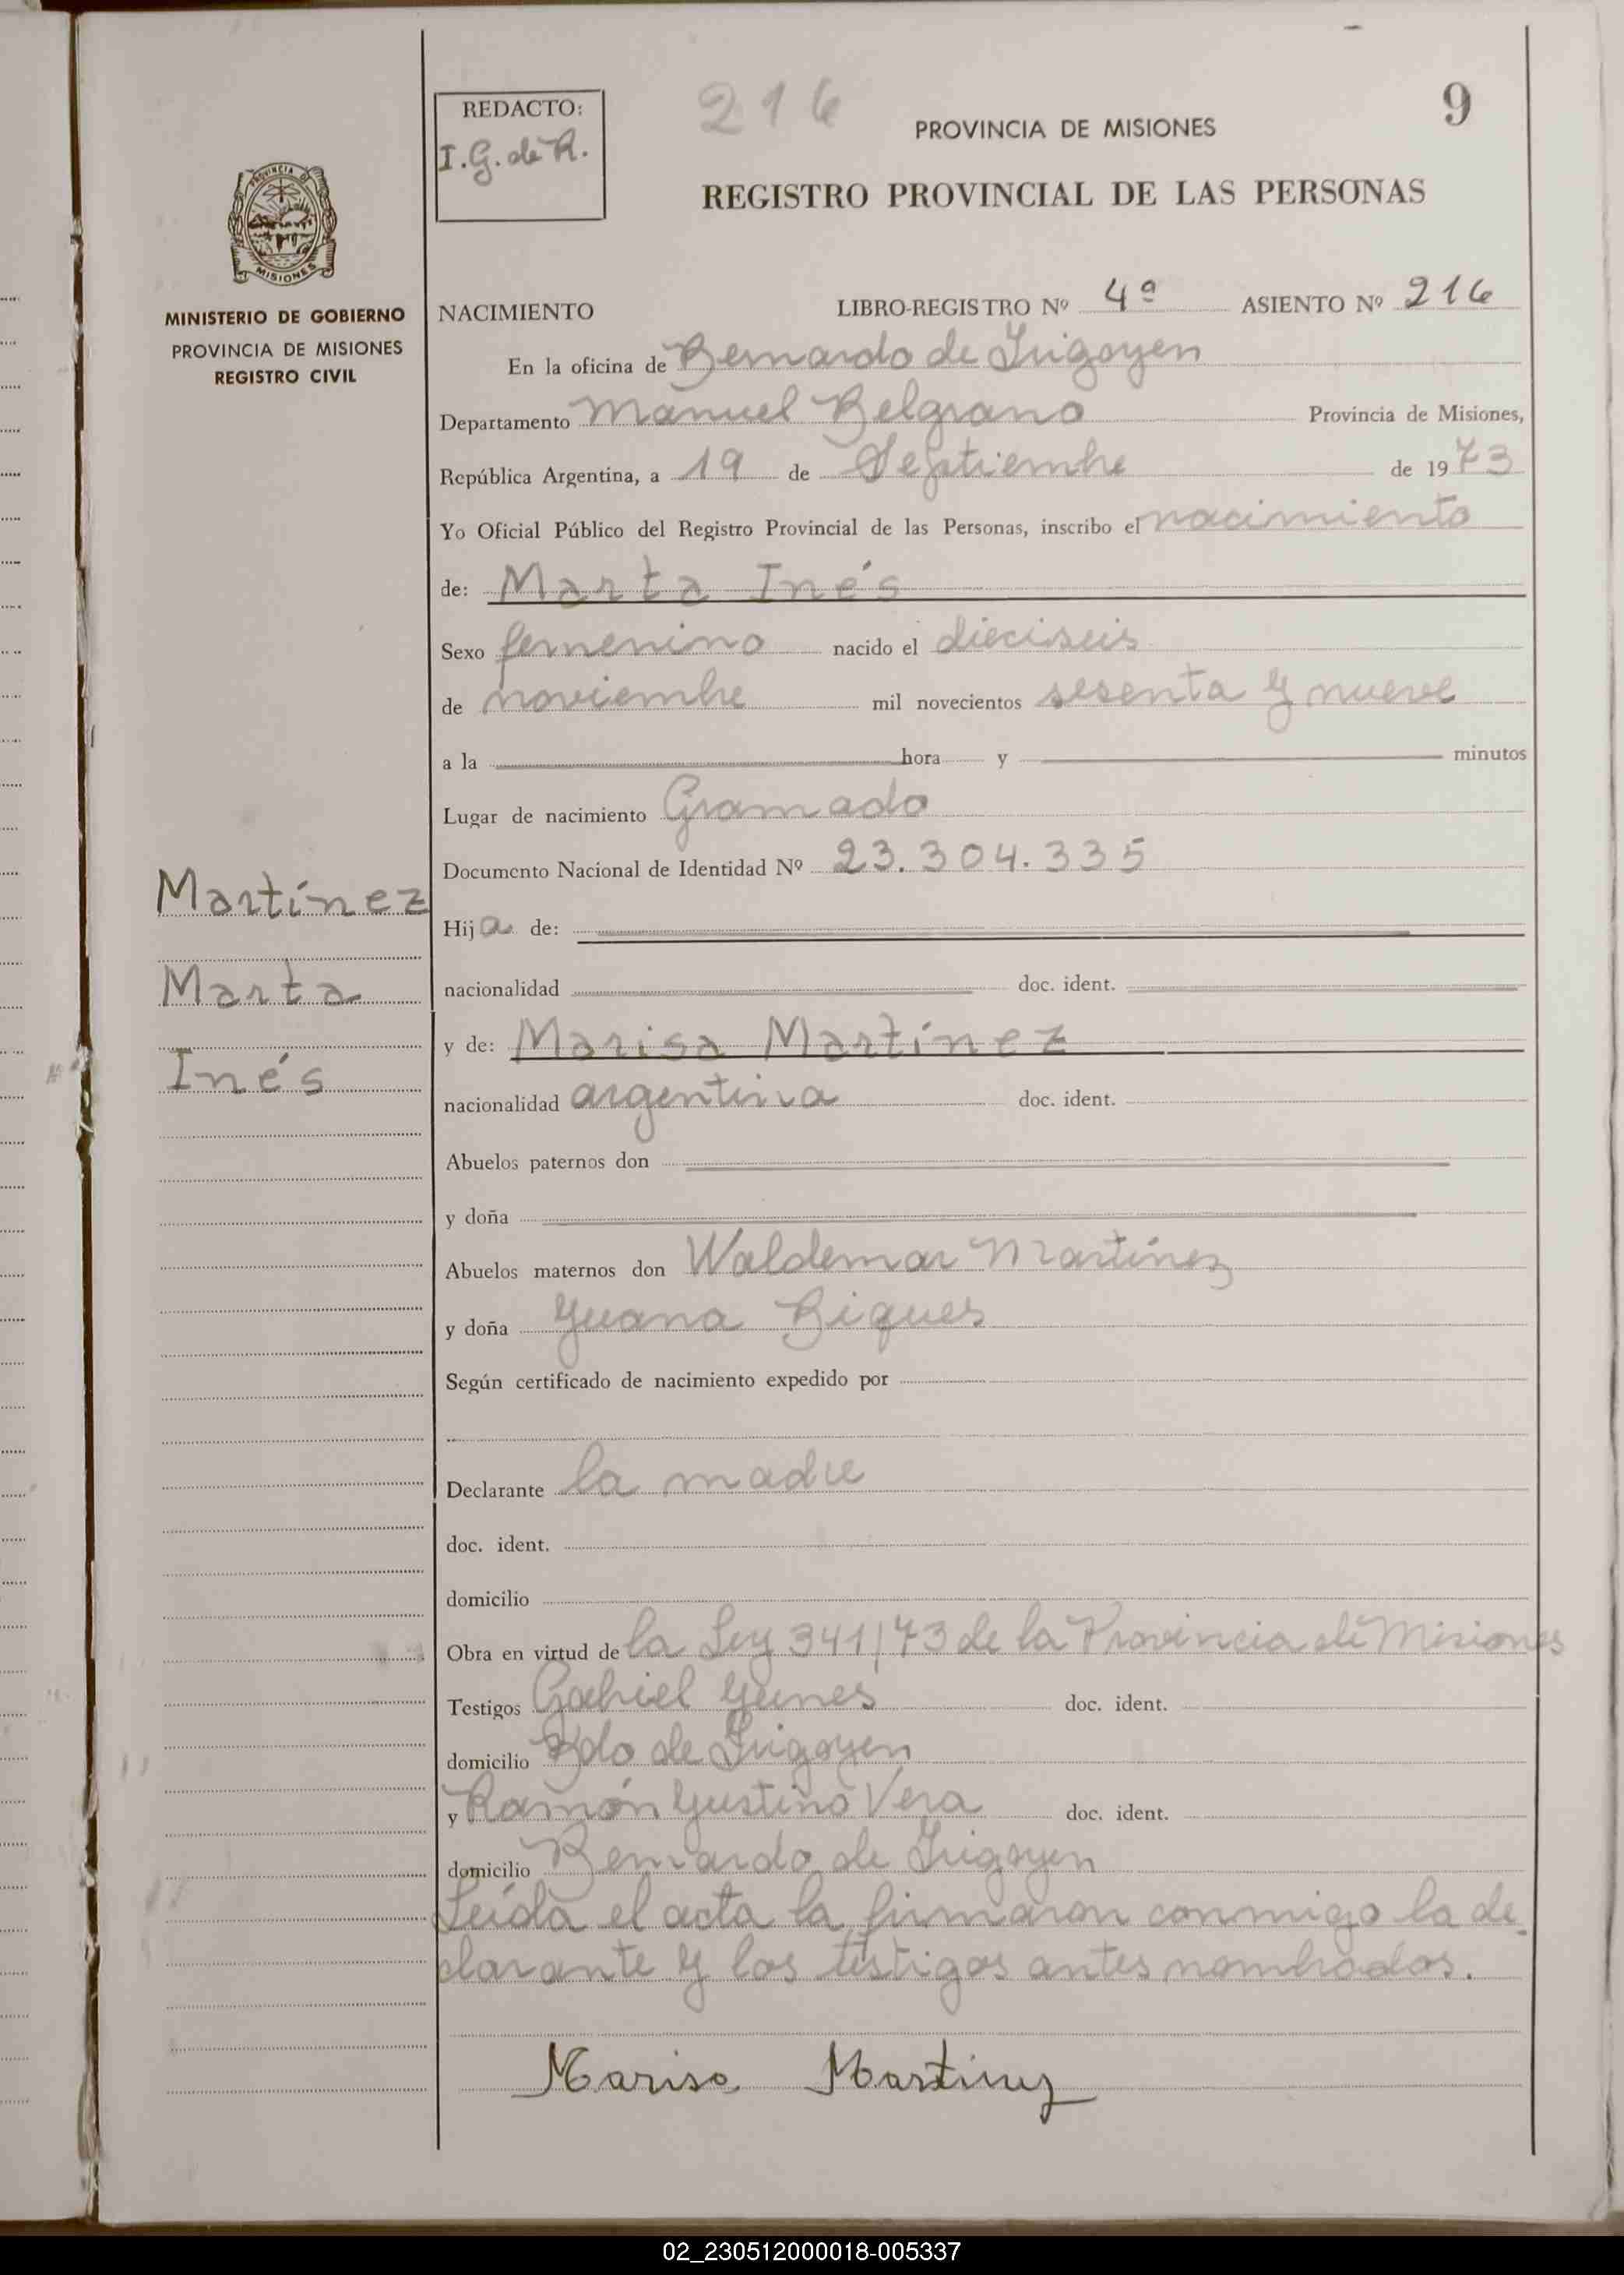 REDACTO:
I.G. de R.
216
9
PROVINCIA DE MISIONES
REGISTRO PROVINCIAL DE LAS PERSONAS
PROVINCIA DE
MISIONES
MINISTERIO DE GOBIERNO
PROVINCIA DE MISIONES
REGISTRO CIVIL
NACIMIENTO LIBRO-REGISTRO Nº 4º ASIENTO Nº 216
En la oficina de Bernardo de Irigoyen
Departamento Manuel Belgrano Provincia de Misiones,
República Argentina, a 19 de Septiembre de 1973
Yo Oficial Público del Registro Provincial de las Personas, inscribo el nacimiento
de: Marta Inés
Sexo femenino nacido el dieciseis
de noviembre mil novecientos sesenta y nueve
a la hora y minutos
Lugar de nacimiento Gramado
Documento Nacional de Identidad Nº 23.304.335
Martínez
Marta
Inés
Hija de:
nacionalidad doc. ident.
y de: Marisa Martínez
nacionalidad argentina doc. ident.
Abuelos paternos don
y doña
Abuelos maternos don Waldemar Martínez
y doña Juana Riques
Según certificado de nacimiento expedido por
Declarante la madre
doc. ident.
domicilio
Obra en virtud de la Ley 341/73 de la Provincia de Misiones
Testigos Gabriel doc. ident.
domicilio Bdo de Irigoyen
y Ramón Justino Vera doc. ident.
domicilio Bernardo de Irigoyen
Leída el acta la firmaron conmigo la de_
clarante y los testigos antes nombrados.
Marisa Martinez
02_230512000018-005337